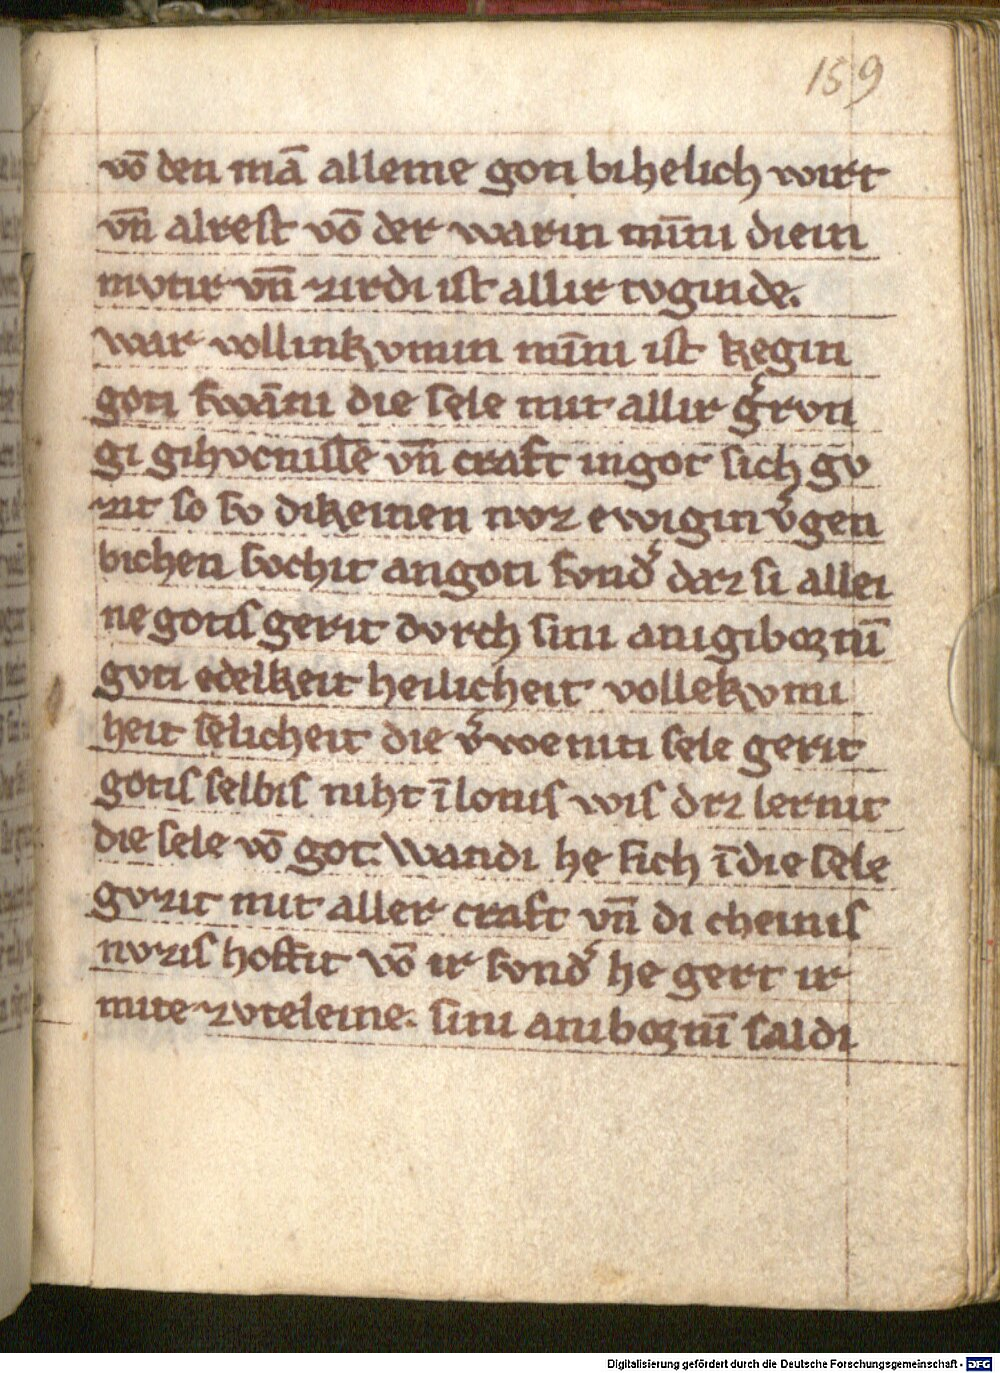 159
vō den mā alleine goti bihelich wirt
vn̄ alrest vō der warin mīni diein
mvtir vn̄ zirdi ist allir tvginde.
war vollinkvmin mīni ist kegin
goti swāni die sele mit allir g͛rvn
gi gihvcnisse vn̄ craft ingot sich gv
zit so so dikeinen nvz ewigin v͛gen
bichen sochit angoti sond͛ daz si allei
ne gotis gerit dorch sini anigibornī
gvti edelkeit heilicheit vollekvmi
heit selicheit die v͛weniti sele gerit
gotis selbis niht ī lonis wis dez lernit
die sele vō got. Wandi he sich ī die sele
gvzit mit aller craft vn̄ di cheinis
nvzis hoffit vō ir sond͛ he gert ir
mite zvteleine. sini anibornī saldi
Digitalisierung gefördert durch die Deutsche Forschungsgemeinschaft - DFG